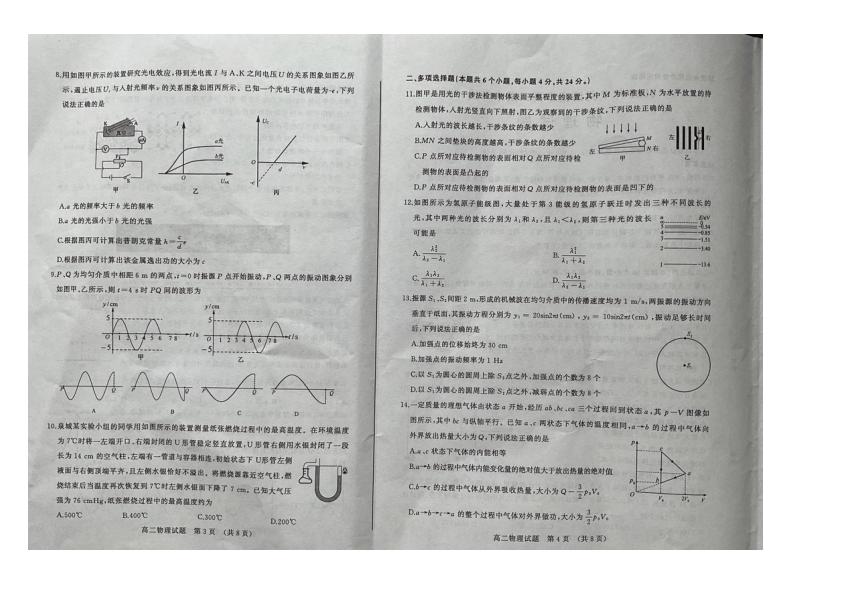 8.用如图甲所示的装置研究光电效应,得到光电流 I 与 A、K 之间电压 U 的关系图象如图乙所
示,遏止电压U,与入射光频率ν的关系图象如图丙所示。已知一个光电子电荷量为-e,下列
说法正确的是
甲
乙
丙
A.a 光的频率大于 b 光的频率
B.a 光的光强小于 b 光的光强
C.根据图丙可计算出普朗克常量 h=c/d e
D.根据图丙可计算出该金属逸出功的大小为 c
9.P、Q 为均匀介质中相距 6 m 的两点,t=0 时振源 P 点开始振动,P、Q 两点的振动图象分别
如图甲、乙所示,则 t=4 s 时 PQ 间的波形为
y/cm
y/cm
t/s
t/s
甲
乙
A B C D
10.泉城某实验小组的同学用如图所示的装置测量纸张燃烧过程中的最高温度。在环境温度
为7℃时将一左端开口、右端封闭的 U 形管稳定竖直放置,U 形管右侧用水银封闭了一段
长为 14 cm 的空气柱,左端有一管道与容器相连,初始状态下 U形管左侧
液面与右侧顶端平齐,且左侧水银恰好不溢出。将燃烧源靠近空气柱,燃
烧结束后当温度再次恢复到 7℃时左侧水银面下降了 7 cm。已知大气压
强为 76 cmHg,纸张燃烧过程中的最高温度约为
A.500℃ B.400℃ C.300℃ D.200℃
高二物理试题 第 3 页 (共 8 页)
二、多项选择题(本题共 6 个小题,每小题 4 分,共 24 分。)
11.图甲是用光的干涉法检测物体表面平整程度的装置,其中 M 为标准板,N 为水平放置的待
检测物体,入射光竖直向下照射,图乙为观察到的干涉条纹,下列说法正确的是
A.入射光的波长越长,干涉条纹的条数越少
B.MN 之间垫块的高度越高,干涉条纹的条数越少
C.P 点所对应待检测物的表面相对 Q 点所对应待检
测物的表面是凸起的
D.P 点所对应待检测物的表面相对 Q 点所对应待检物的表面是凹下的
左 M N 右
甲
左 右
乙
12.如图所示为氢原子能级图,大量处于第 3 能级的氢原子跃迁时发出三种不同波长的
光,其中两种光的波长分别为 λ₁ 和 λ₂,且 λ₁<λ₂,则第三种光的波长
可能是
n E/eV
5 -0.54
4 -0.85
3 -1.51
2 -3.40
1 -13.6
13.振源 S₁、S₂间距 2 m,形成的机械波在均匀介质中的传播速度均为 1 m/s,两振源的振动方向
垂直于纸面,其振动方程分别为 y₁=20sin2πt(cm)、y₂=10sin2πt(cm),振动足够长时间
后,下列说法正确的是
A.加强点的位移始终为 30 cm
B.加强点的振动频率为 1 Hz
C.以 S₁为圆心的圆周上除 S₂点之外,加强点的个数为 8 个
D.以 S₁为圆心的圆周上除 S₂点之外,减弱点的个数为 8 个
14.一定质量的理想气体由状态 a 开始,经历 ab、bc、ca 三个过程回到状态 a,其 p-V 图像如
图所示,其中 bc 与纵轴平行。已知 a、c 两状态下气体的温度相同,a→b 的过程中气体向
外界放出热量大小为 Q,下列说法正确的是
A.a、c 状态下气体的内能相等
B.a→b 的过程中气体内能变化量的绝对值大于放出热量的绝对值
C.b→c 的过程中气体从外界吸收热量,大小为 Q-3/2 p₀V₀
D.a→b→c→a 的整个过程中气体对外界做功,大小为 3/2 p₀V₀
高二物理试题 第 4 页 (共 8 页)